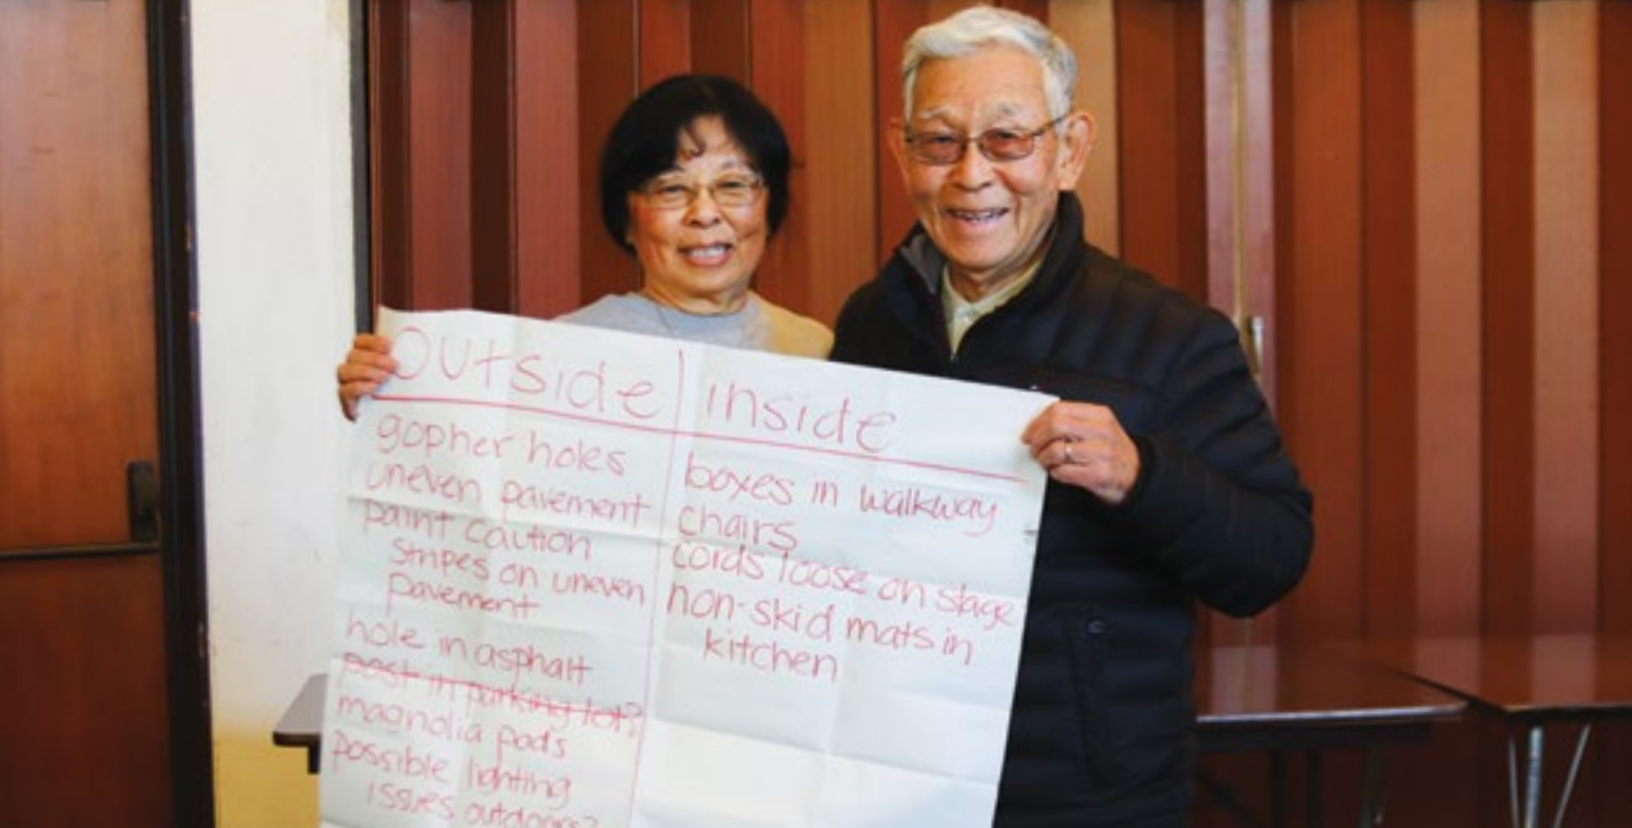 Outside
gopher holes
uneven pavement
paint caution
stripes on uneven
pavement
hole in asphalt
post in parking lot?
magnolia pods
possible lighting
issues outdoors?
inside
boxes in walkway
chairs
cords loose on stage
non-skid mats in
kitchen